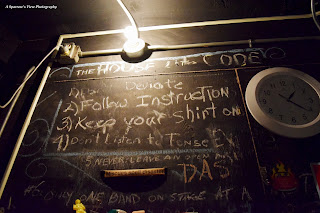 A Sparrow's View Photography
THE HOUSE CODE
1) Deviate
2) Follow Instruction
3) Keep your shirt on
4) Don't Listen to
5 NEVER LEAVE AN OPEN
DAS
ONLY ONE BAND ON STAGE AT A